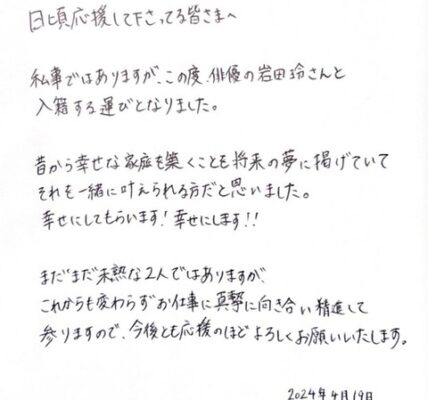 日頃応援して下さってる皆さまへ
私事ではありますが、この度、俳優の岩田玲さんと
入籍する運びとなりました。
昔から幸せな家庭を築くことも将来の夢に掲げていて
それを一緒に叶えられる方だと思いました。
幸せにしてもらいます!幸せにします!!
まだまだ未熟な2人ではありますが、
これからも変わらずお仕事に真摯に向き合い精進して
参りますので、今後とも応援のほどよろしくお願いいたします。
2024年4月19日